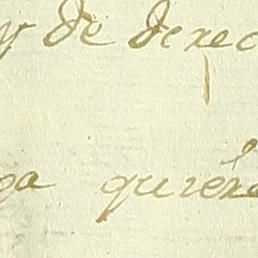 y de derec
ga quiere